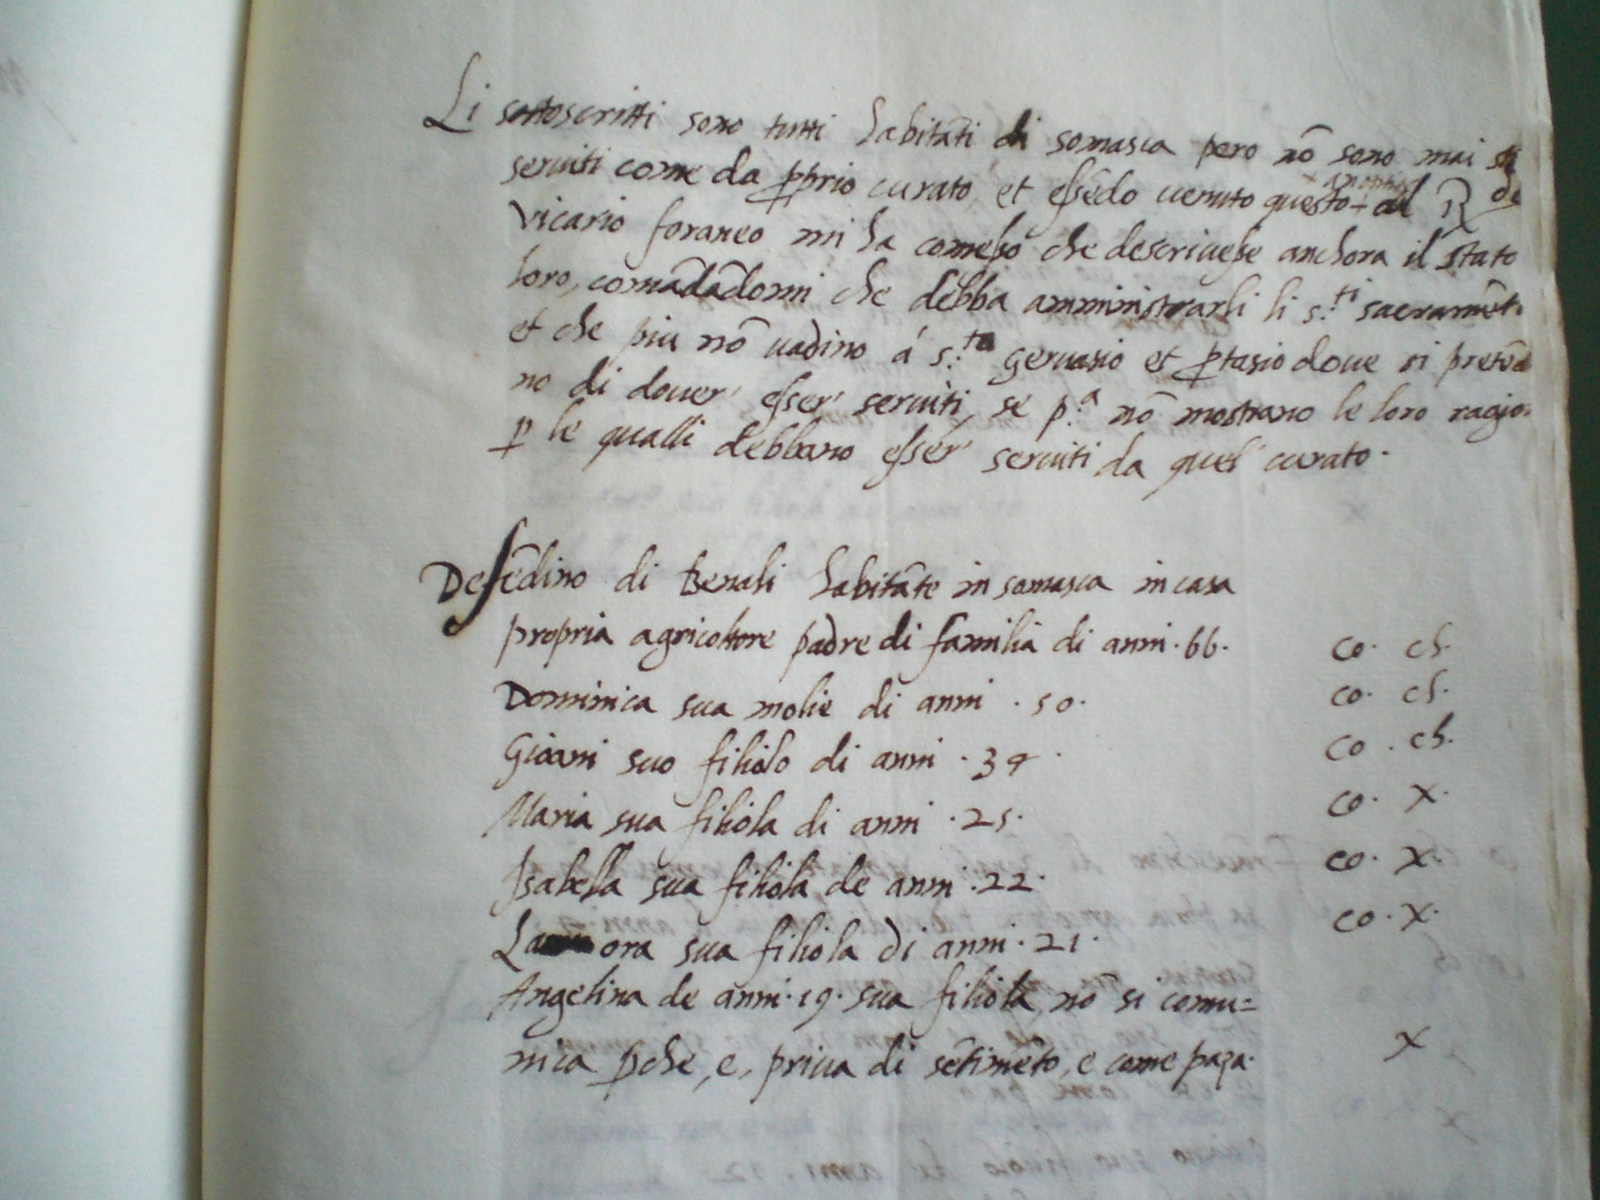 Li sottoscritti sono tutti habitāti di somasca pero nō sono mai
seruiti come da ꝓprio curato, et essēdo uenuto questo al R de
Vicario foraneo mi ha comesso che descriuesse anchora il stato
loro, comādādomi che debba amministrarli li s.ti sacramēti
et che piu nō uadino á s.to geruasio et ꝓtasio doue si pretēdo
no di douer' esser' seruiti, se p.a nō mostrano le loro ragio
ꝑ le qualli debbano esser' seruiti da quel' curato.
Defēdino di Benali habitāte in somasca in casa
propria agricoltore padre di familia di anni .66. co. ch.
Dominica sua molie di anni .50. co. ch.
Gioani suo filiolo di anni .34. co. ch.
Maria sua filiola di anni .25. co. X.
Isabella sua filiola de anni .22. co. X.
ora sua filiola di anni .21. co. X.
Angelina de anni .19. sua filiola nō si comu=
nica ꝑche, e, priua di sētimēto, e come paza. X